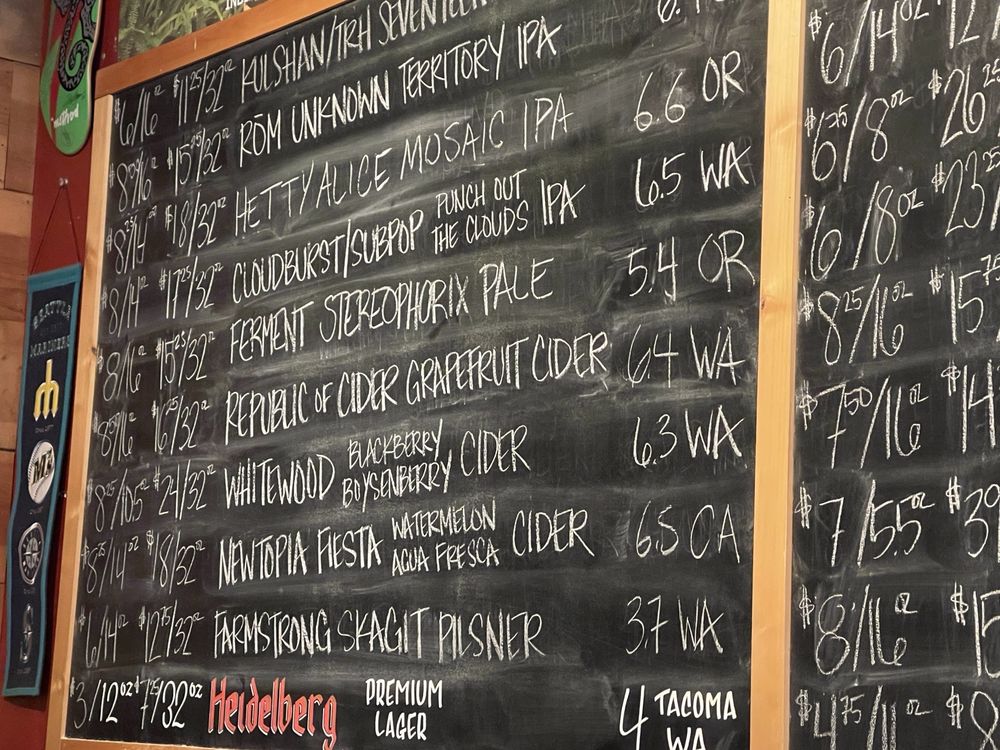 $6/16oz $11.25/32oz KULSHAN/TRH
$8.50/16oz $15.25/32oz RŌM UNKNOWN TERRITORY IPA
$8.25/14oz $18/32oz HETTY ALICE MOSAIC IPA 6.6 OR
$8/14oz $17.25/32oz CLOUDBURST/SUBPOP PUNCH OUT THE CLOUDS IPA 6.5 WA
$8/16oz $15.25/32oz FERMENT STEREOPHORIX PALE 5.4 OR
$8.50/16oz $16.25/32oz REPUBLIC OF CIDER GRAPEFRUIT CIDER 6.4 WA
$8.25/10.5oz $24/32oz WHITEWOOD BLACKBERRY BOYSENBERRY CIDER 6.3 WA
$8.25/14oz $18/32oz NEWTOPIA FIESTA WATERMELON AGUA FRESCA CIDER 6.5 CA
$6/14oz $12.75/32oz FARMSTRONG SKAGIT PILSNER 3.7 WA
$3/12oz $7.25/32oz Heidelberg PREMIUM LAGER 4 TACOMA WA
$6/14oz
$6.25/8oz $26.25
$6/8oz
$8.25/16oz $15.75
$7.50/16oz
$7/5.5oz
$8/16oz
$4.75/11oz
SEATTLE
MARINERS